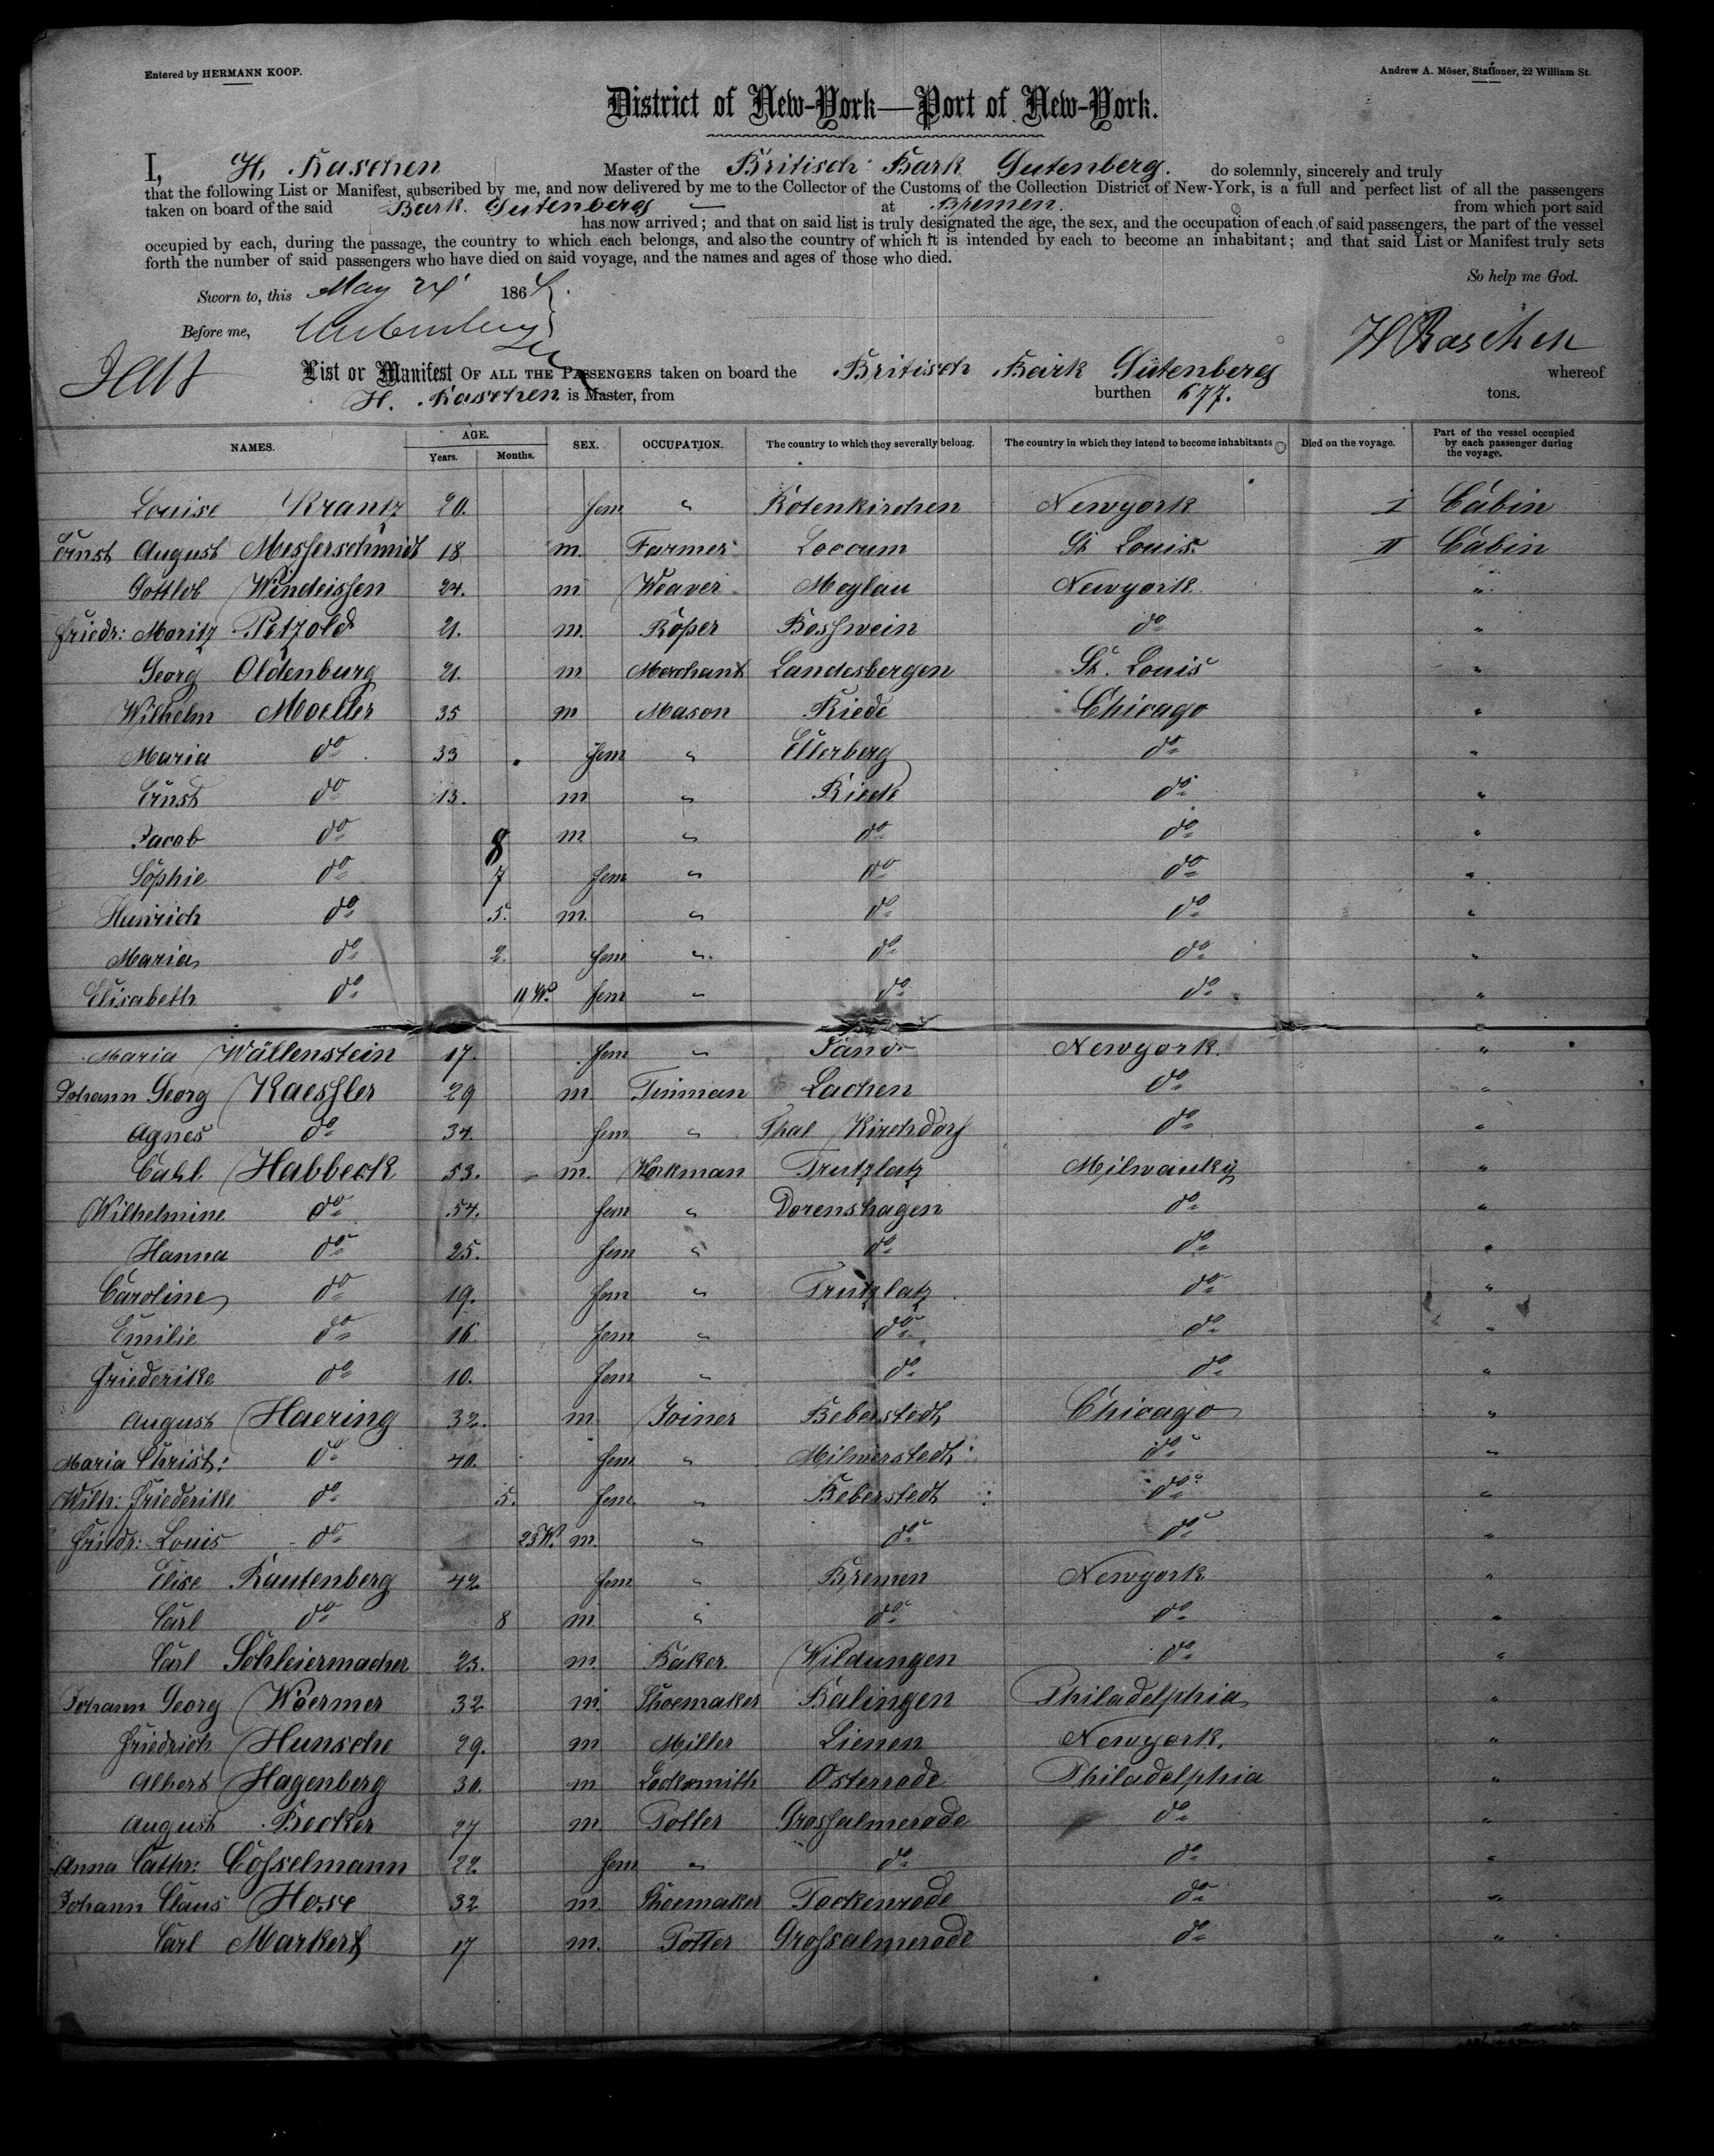 Entered by HERMANN KOOP.
Andrew A. Möser, Stationer, 22 William St.
District of New-York—Port of New-York.
I, H. Raschen Master of the Britisch Bark Gutenberg. do solemnly, sincerely and truly
that the following List or Manifest, subscribed by me, and now delivered by me to the Collector of the Customs of the Collection District of New-York, is a full and perfect list of all the passengers
taken on board of the said Bark Gutenberg at Bremen. from which port said
has now arrived; and that on said list is truly designated the age, the sex, and the occupation of each of said passengers, the part of the vessel
occupied by each, during the passage, the country to which each belongs, and also the country of which it is intended by each to become an inhabitant; and that said List or Manifest truly sets
forth the number of said passengers who have died on said voyage, and the names and ages of those who died.
So help me God.
Sworn to, this May 24 186
Before me,
H Raschen
List or Manifest OF ALL THE PASSENGERS taken on board the Britisch Bark Gutenberg whereof
H. Raschen is Master, from burthen 677. tons.
NAMES. AGE. Years. Months. SEX. OCCUPATION. The country to which they severally belong. The country in which they intend to become inhabitants Died on the voyage. Part of the vessel occupied by each passenger during the voyage.
Louise Krantz 20. fem " Rotenkirchen Newyork I Cabin
Ernst August Messerschmidt 18 m. Farmer Loccum St Louis. II Cabin
Gottlob Windeissen 24. m Weaver Meylau Newyork "
Friedr: Moritz Petzold 21. m. Roper Rosswein do "
Georg Oldenburg 21. m Merchant Landesbergen St. Louis "
Wilhelm Moeller 35 m Mason Riede Chicago "
Maria do 33 fem " Ellerberg do "
Ernst do 13. m " Riede do "
Jacob do 8 m " do do "
Sophie do 7 fem " do do "
Heinrich do 5. m. " do do "
Maria do 2. fem " do do "
Elisabeth do 11 W. fem " do do "
Maria Wallenstein 17. fem " Newyork. "
Johann Georg Kaessler 29 m. Tinman Lachen do "
Agnes do 34. fem " Thal Kirchdorf do "
Carl Habbeck 53. m. Workman Trutzlatz Milwauky "
Wilhelmine do 54. fem " Dorenshagen do "
Hanna do 25. fem " do do "
Caroline do 19. fem " Trutzlatz do "
Emilie do 16. fem " do do "
Friederike do 10. fem " do do "
August Haering 32. m Joiner Beberstedt Chicago "
Maria Christ: do 40. fem " Milwerstedt do "
Wilh: Friederike do 5. fem " Beberstedt do "
Friedr: Louis do 23 W. m. " do do "
Elise Rautenberg 42 fem " Bremen Newyork "
Carl do 8 m " do do "
Carl Schleiermacher 23. m Baker Wildungen do "
Johann Georg Woermer 32 m. Shoemaker Balingen Philadelphia "
Friedrich Hunsche 29. m Miller Lienen Newyork. "
Albert Hagenberg 30. m Locksmith Osterrode Philadelphia "
August Becker 27 m. Potter Grossalmerode do "
Anna Cathr: Cosselmann 22. fem " do do "
Johann Claus Hose 32 m. Shoemaker Tockenrode do "
Carl Markert 17 m. Potter Grossalmerode do "